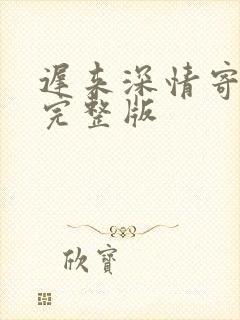 遲来深情寄
完整版
欣寶